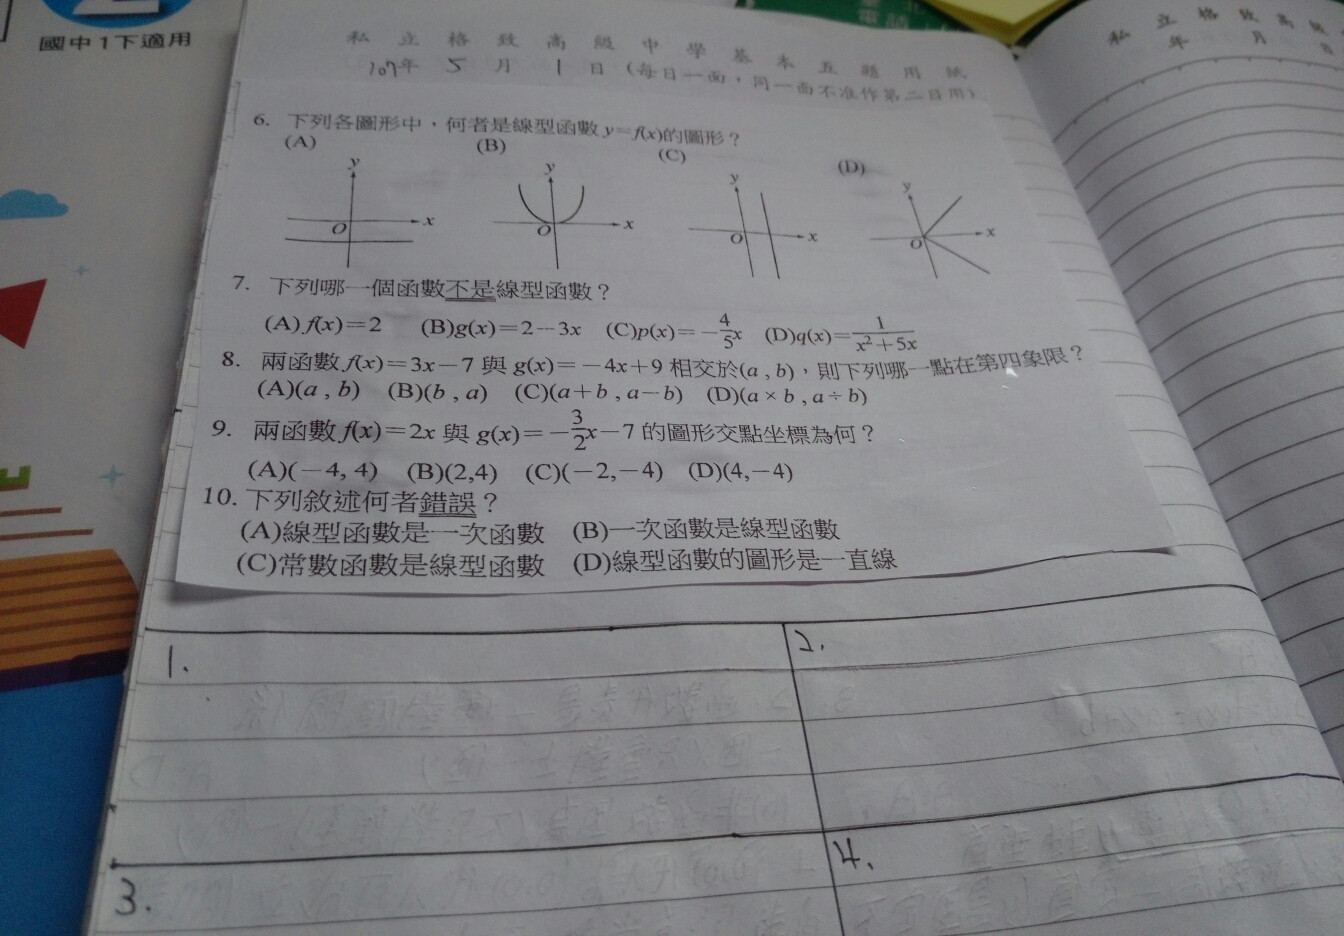 國中1下適用
私立格致高級中學基本五題用紙
107年 5月 1日(每日一面,同一面不准作第二日用)
6. 下列各圖形中,何者是線型函數 y=f(x)的圖形?
(A) (B) (C) (D)
y y y y
O x O x O x O x
7. 下列哪一個函數不是線型函數?
(A) f(x)=2 (B)g(x)=2-3x (C)p(x)=-4/5x (D)q(x)=1/(x²+5x)
8. 兩函數 f(x)=3x-7 與 g(x)=-4x+9 相交於(a , b),則下列哪一點在第四象限?
(A)(a , b) (B)(b , a) (C)(a+b , a-b) (D)(a × b , a ÷ b)
9. 兩函數 f(x)=2x 與 g(x)=-3/2x-7 的圖形交點坐標為何?
(A)(-4, 4) (B)(2,4) (C)(-2,-4) (D)(4,-4)
10. 下列敘述何者錯誤?
(A)線型函數是一次函數 (B)一次函數是線型函數
(C)常數函數是線型函數 (D)線型函數的圖形是一直線
1. 2.
3. 4.
私立格致高級
年 月